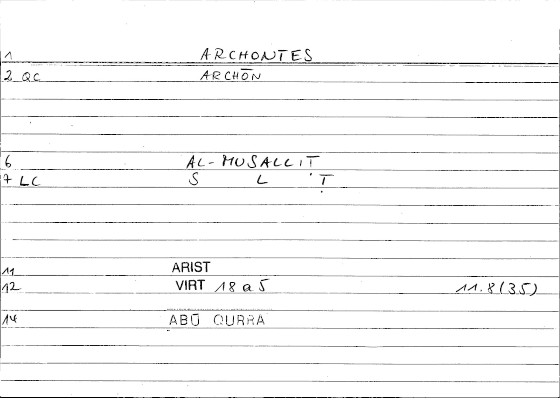 1 ARCHONTES
2 QC ARCHŌN
6 AL-MUSALLIṬ
7 LC S L Ṭ
11 ARIST
12 VIRT 18 a 5 11.8 (35)
14 ABŪ QURRA